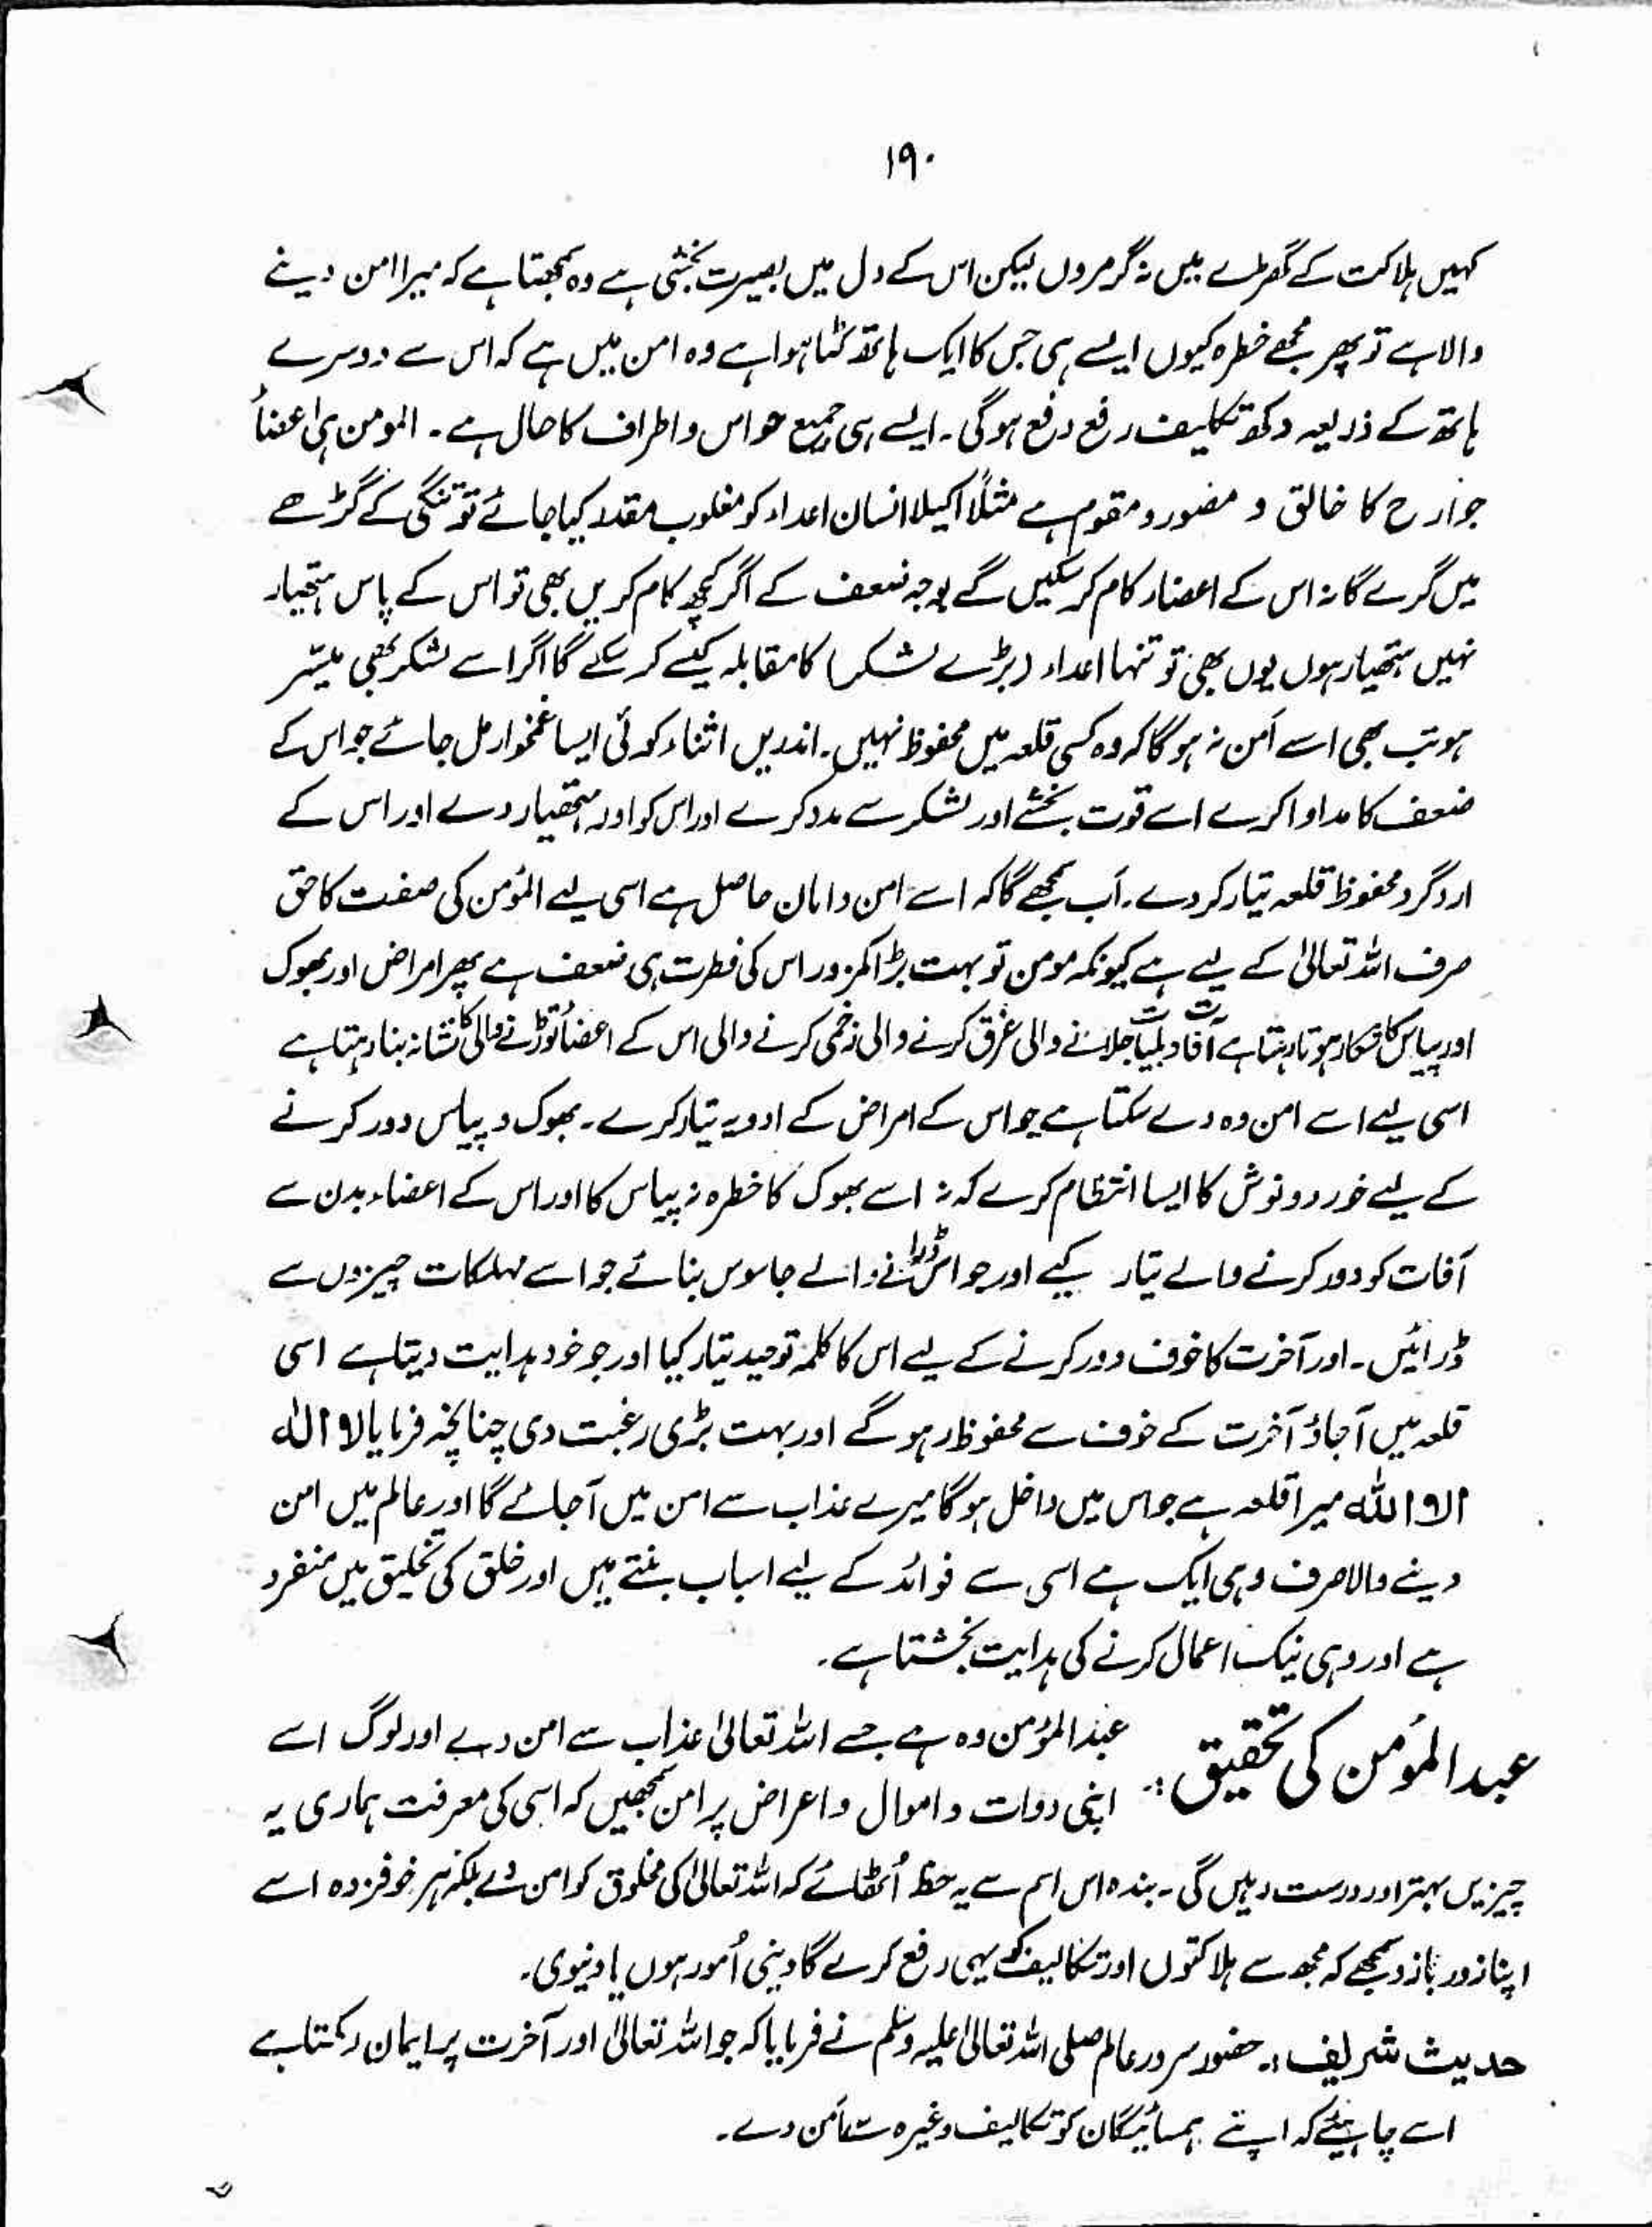 ۱۹۰
کہیں ہلاکت کے گھڑے میں نہ گرمروں لیکن اس کے دل میں بصیرت بخشی ہے وہ سمجھتا ہے کہ میرا امن دینے
والا ہے تو پھر مجھے خطرہ کیوں ایسے ہی جس کا ایک ہاتھ کٹا ہوا ہے وہ امن میں ہے کہ اس سے دوسرے
ہاتھ کے ذریعہ دکھ تکلیف رفع دفع ہوگی۔ ایسے ہی جمیع حواس و اطراف کا حال ہے۔ المومن ہی اعضأ
جوارح کا خالق و مصور و مقوم ہے مثلاً اکیلا انسان اعداء کو مغلوب مقدر کیا جائے تو تنگی کے گڑھے
میں گرے گا نہ اس کے اعضار کام کر سکیں گے بوجہ ضعف کے اگر کچھ کام کریں بھی تو اس کے پاس ہتھیار
نہیں ہتھیار ہوں یوں بھی تو تنہا اعداء (بڑے لشکر) کا مقابلہ کیسے کر سکے گا اگر اسے لشکر بھی میسّر
ہو تب بھی اسے اَمن نہ ہوگا کہ وہ کسی قلعہ میں محفوظ نہیں۔ اندریں اثناء کوئی ایسا غمخوار مل جائے جو اس کے
ضعف کا مداوا کرے اسے قوت بخشے اور لشکر سے مدد کرے اور اس کو اور ہتھیار دے اور اس کے
اردگرد محفوظ قلعہ تیار کردے۔ اَب سمجھے گا کہ اسے امن و امان حاصل ہے اسی لیے المؤمن کی صفت کا حق
صرف اللہ تعالیٰ کے لیے ہے کیونکہ مومن تو بہت بڑا کمزور اس کی فطرت ہی ضعف ہے پھر امراض اور بھوک
اور پیاس کا شکار ہوتا رہتا ہے آفات و بلیات جلانے والی غرق کرنے والی زخمی کرنے والی اس کے اعضأ توڑنے والی کا نشانہ بنا رہتا ہے
اسی لیے اسے امن وہ دے سکتا ہے جو اس کے امراض کے ادویہ تیار کرے۔ بھوک و پیاس دور کرنے
کے لیے خوردونوش کا ایسا انتظام کرے کہ نہ اسے بھوک کا خطرہ نہ پیاس کا اور اس کے اعضاء بدن سے
آفات کو دور کرنے والے تیار کیے اور جو اس ڈرانے والے جاسوس بنائے جو اسے مہلکات چیزوں سے
ڈرائیں۔ اور آخرت کا خوف دور کرنے کے لیے اس کا کلمہ توحید تیار کیا اور جو خود ہدایت دیتا ہے اسی
قلعہ میں آجاؤ آخرت کے خوف سے محفوظ رہو گے اور بہت بڑی رغبت دی چنانچہ فرمایا لا الٰہ
الا اللہ میرا قلعہ ہے جو اس میں داخل ہوگا میرے عذاب سے امن میں آجائے گا اور عالم میں امن
دینے والا صرف وہی ایک ہے اسی سے فوائد کے لیے اسباب بنتے ہیں اور خلق کی تخلیق میں منفرد
ہے اور وہی نیک اعمال کرنے کی ہدایت بخشتا ہے۔
عبد المؤمن کی تحقیق :۔ عبد المؤمن وہ ہے جسے اللہ تعالیٰ عذاب سے امن دے اور لوگ اسے
اپنی دوات و اموال و اعراض پر امن سمجھیں کہ اسی کی معرفت ہماری یہ
چیزیں بہتر اور درست رہیں گی۔ بندہ اس اسم سے یہ حظ اُٹھائے کہ اللہ تعالیٰ کی مخلوق کو امن دے بلکہ ہر خوفزدہ اسے
اپنا زور بازو سمجھے کہ مجھ سے ہلاکتوں اور تکالیف کو یہی رفع کرے گا دینی اُمور ہوں یا دنیوی۔
حدیث شریف :۔ حضور سرور عالم صلی اللہ تعالیٰ علیہ وسلم نے فرمایا کہ جو اللہ تعالیٰ اور آخرت پر ایمان رکھتا ہے
اسے چاہیئے کہ اپنے ہمسائیگان کو تکالیف وغیرہ سے اَمن دے۔